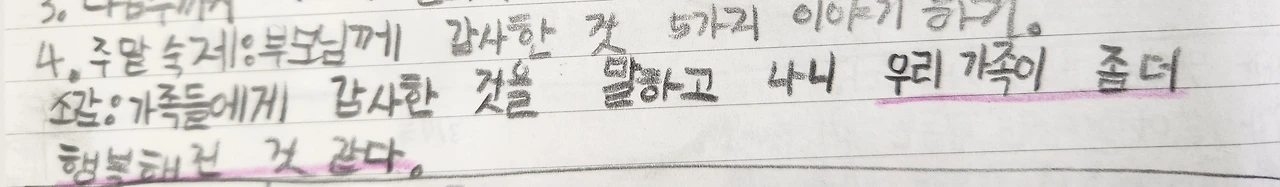 3.
4. 주말 숙제:부모님께 감사한 것 5가지 이야기 하기.
소감:가족들에게 감사한 것을 말하고 나니 우리 가족이 좀 더
행복해진 것 같다.